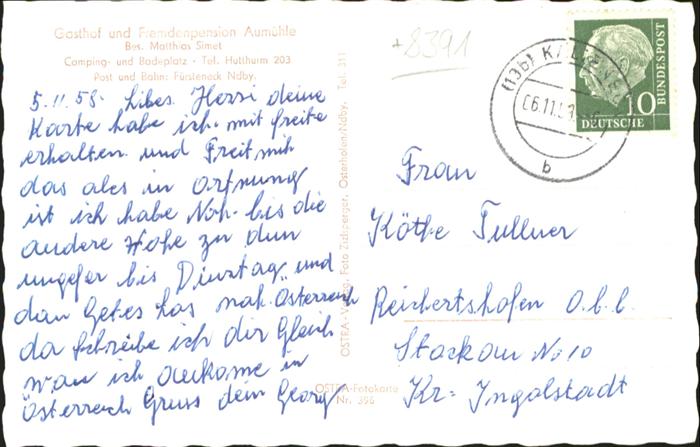 Gasthof und Fremdenpension Aumühle
Bes. Matthias Simet
Camping- und Badeplatz - Tel. Hutthurm 203
Post und Bahn: Fürsteneck Ndby.
+8391
(13b) KA
06.11.5
b
10
DEUTSCHE
BUNDESPOST
5.11.58. Libes Herzi deine
Karte habe ich mit freite
erhalten und Freit mich
das ales in Ortnung
ist ich habe Noh bis die
andere Wohe zu dun
ungefer bis Dinstag und
dan Get es los nah Österreich
da schreibe ich dir Gleich
wan ich ankome in
Österreich Gruss dein Georg
OSTRA-Verlag, Foto Zidlsperger, Osterhofen/Ndby. Tel. 311
OSTRA-Fotokarte
Nr. 396
Frau
Käthe Tullner
Reichertshofen O.b.b.
Stockau No 10
Kr: Ingolstadt